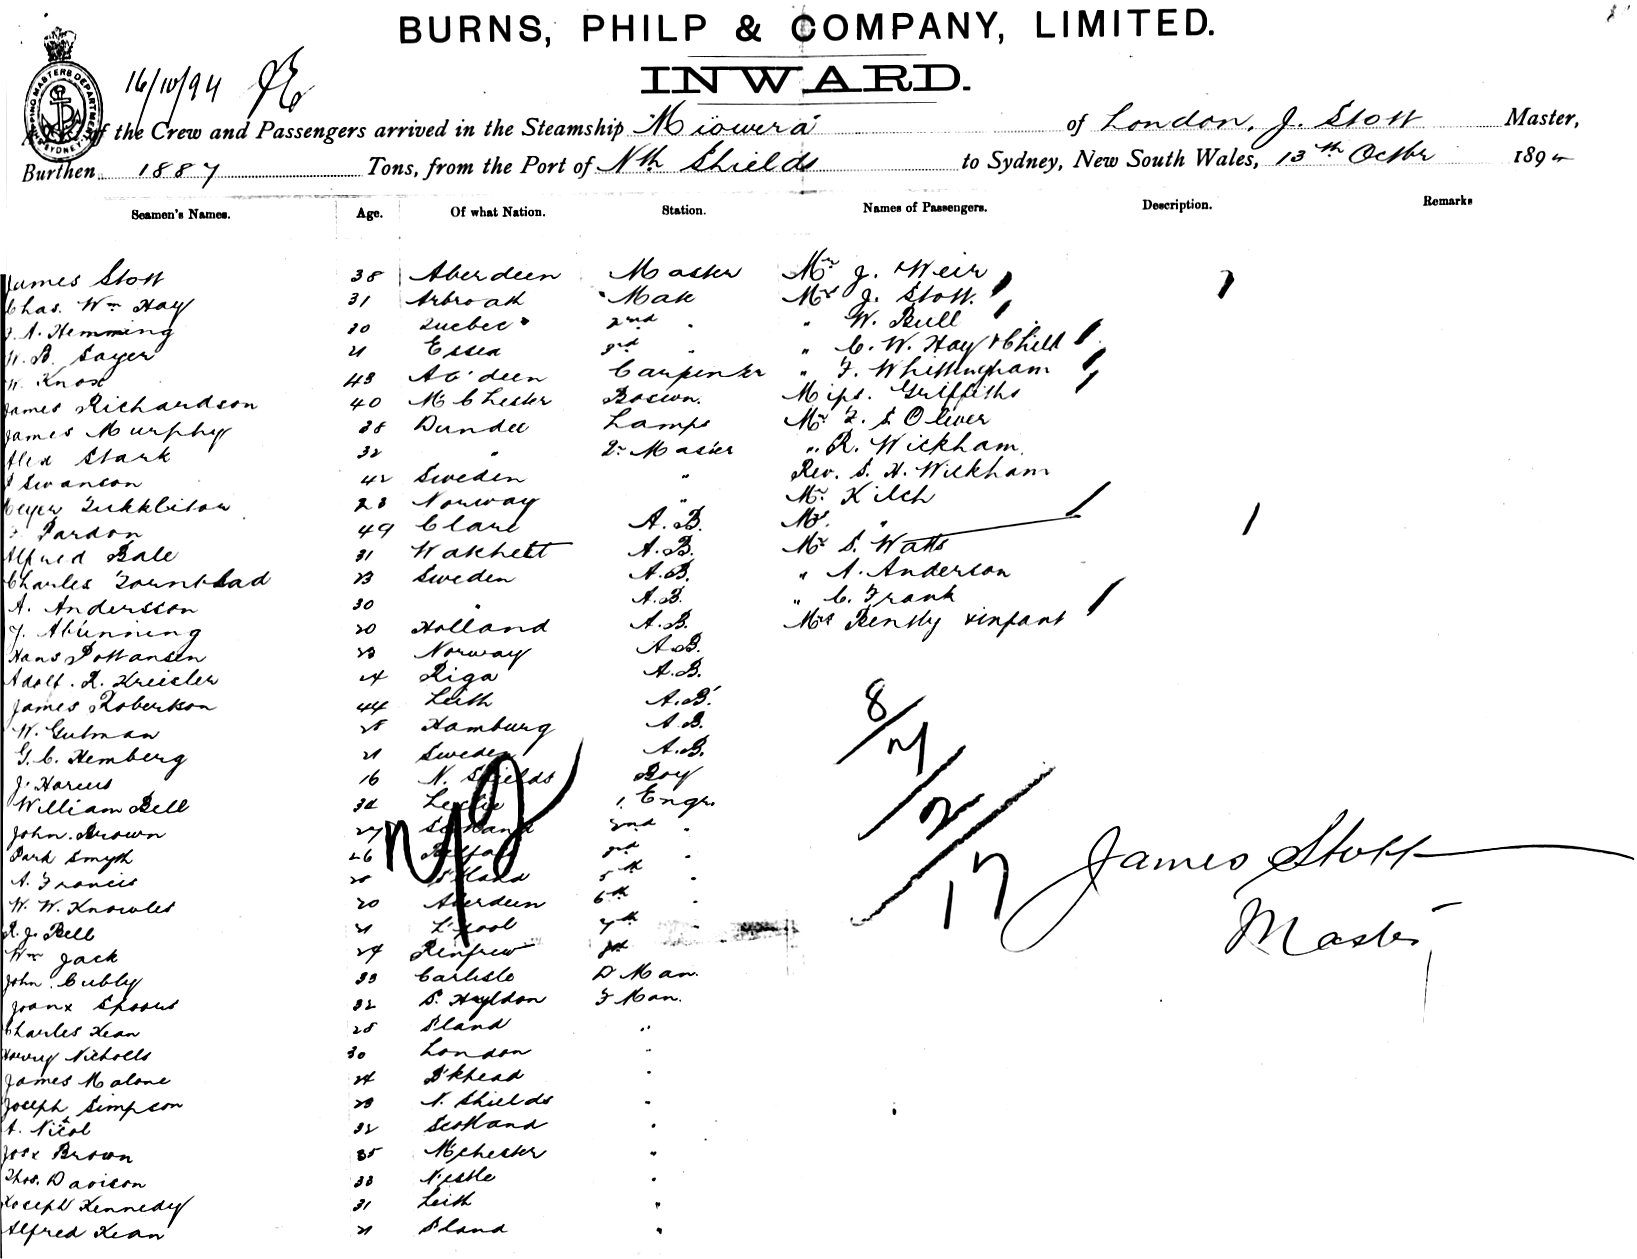 BURNS, PHILP & COMPANY, LIMITED.
INWARD.
16/10/94
of the Crew and Passengers arrived in the Steamship "Miowera" of London, J. Stott Master,
Burthen 1887 Tons, from the Port of Nth Shields to Sydney, New South Wales, 13th Octbr 189
Seamen's Names. Age. Of what Nation. Station. Names of Passengers. Description. Remarks
James Stott 38 Aberdeen Master Mr J. Weir
Chas. Wm Hay 31 Arbroath Mate Mrs J. Stott.
J. A. Hemming 30 Quebec 2nd " " W. Bull
W. B. Sayer 21 Essex 3rd " " C. W. Hay & Child
W. Knox 43 Ab'deen Carpenter " F. Whittingham
James Richardson 40 McChester Boswn. Miss. Griffiths
James Murphy 38 Dundee Lamps Mr F. S Oliver
Alex Stark 32 " Qr Master " R. Wickham
J Swanson 42 Sweden " Rev. S. H. Wickham
23 Norway " Mr Kilch
Pardon 49 Clare A.B. Mrs. "
Alfred Bale 31 A.B. Mr S. Watts
Charles 23 Sweden A.B. " A. Anderson
A. Andersson 30 " A.B. " C. Frank
J. 20 Holland A.B. Mrs Bently & infant
Hans 23 Norway A.B.
Adolf. R. Kreisler 24 Riga A.B.
James Robertson 44 Leith A.B.
W. Gutman 25 Hamburg A.B.
G. C. Hemberg 21 Sweden A.B.
J. 16 N. Shields Boy
William Bell 32 Leslie 1. Engr.
John. Brown 27 Scotland 2nd "
Park Smyth 26 Belfast 3rd "
A. Francis 5th "
W. W. Knowles 20 Aberdeen 6th "
R. J. Bell 21 L'pool 7th "
Wm Jack 24 Renfrew
John Cubby 33 Carlisle D Man.
32 F Man.
Charles Kean 25 S'land "
Harry Nicholls 30 London "
James Malone 24 B'khead "
Joseph Simpson 23 N. Shields "
A. Nicol 32 Scotland "
Brown 35 M'chester "
Thos. Davison 33 "
Joseph Kennedy 31 Leith "
Alfred Kean 21 S'land "
8/
2/
17
James Stott
Master